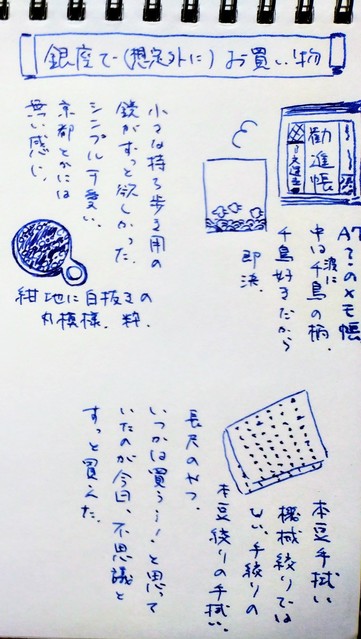 銀座で(想定外に)お買い物
勧進帳
A7 ? このメモ帳
中は波に千鳥の柄。
千鳥好きだから
即決。
小さな持ち歩き用の
鏡がずっと欲しかった。
シンプル可愛い。
京都とかには
無い感じ。
紺地に白抜きの
丸模様。粋。
本豆手拭い
機械絞りでは
ない、手絞りの
本豆絞りの手拭い。
長尺のやつ。
いつかは買う…!と思って
いたのが今日、不思議と
すっと買えた。